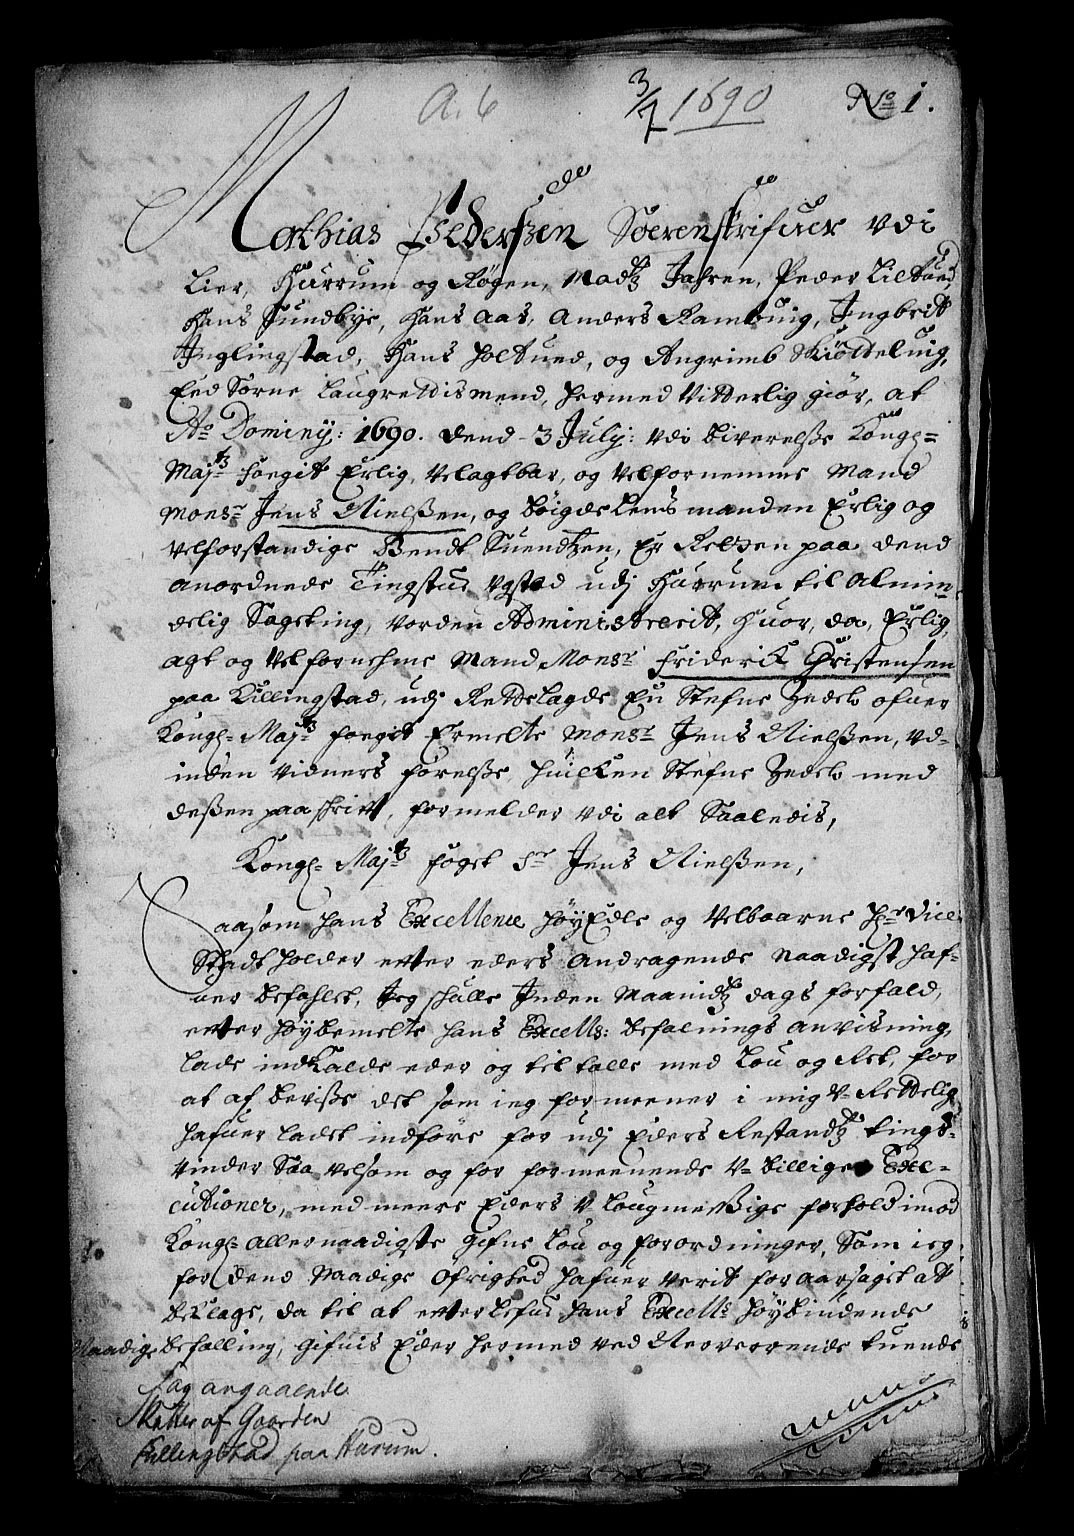 A. 6 3/7 1690 No 1.
Mathias Pederszen Sorenskrifuer udi
Lier, Hurrum og Røgen, Madtz Jahren, Peder Liltued,
Hans Sundbye, Hans Aas, Anders Rambuig, Ingbrit
Inglingstad, Hans Holtued, og Angrimb Skiøtteluig,
Eed Sorne Laugrettismend, hermed Vitterlig giør, at
Ao Dominij: 1690. dend 3 July: udi biverelsse Kongl=
Majtz foegit Erlig, Velagtbar, og Velfornemme Mand
Monsr Jens Nielssen, og bøigdelensmanden Erlig og
Velforstandige Bendt Suendtzen, Er Retten paa dend
anordnede Tingstue Ystad udj Hurrum til almin=
delig Sageting, vorden Administrerit, huor, da, Erlig,
agt og Velfornehme Mand Monsr Friderick Christensen
paa Killingstad, udj Rettelagde En Stefne Zedel ofuer
Kongl= Majtz foegit Ermelte Monsr Jens Nielssen, ud=
inden vidners førelsse, huilken Stefne Zedel med
dessen paaskrivt, formelder udi alt Saaledis,
Kongl= Majtz foget Sr Jens Nielssen,
Saasom hans Excellence høyEdle og Velbaarne Hr Vice
Stadtholder etter eders andragende Naadigst haf=
uer befahlet, Jeg skulle Inden Maanidtz dags forfald,
etter høybemelte hans Excells: befalnings anvisning,
lade indkalde eder og tiltalle med Lou og Ret, for
at af bevisse det som ieg formeener i mig U= Rettelig
hafuer ladet indføre for udj Eders Restandtz tings=
vinder Saa velsom og for formeenende U= billige Exe=
cutioner, med meere Eders U lougmessige forhold imod
Kongl= allernaadigste Gifne Lou og forordninger, Som ieg
for dend Naadige Øfrighed hafuer verit foraarsaget att
beklage, da til at etterlefue hans Excells høybindende
Naadige befalling, Gifuis Eder hermed ved Nerverende tuende
Sag angaaende
Skatter af Gaarden
Killingstad paa Hurum.